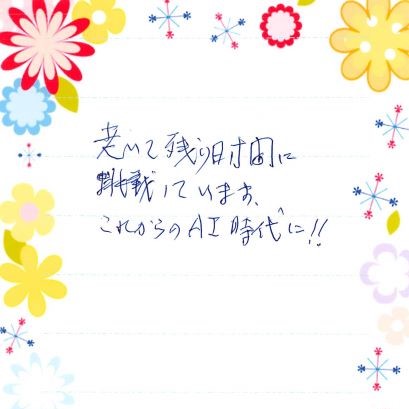 老いて残り時間に
挑戦しています、
これからのAI時代に!!